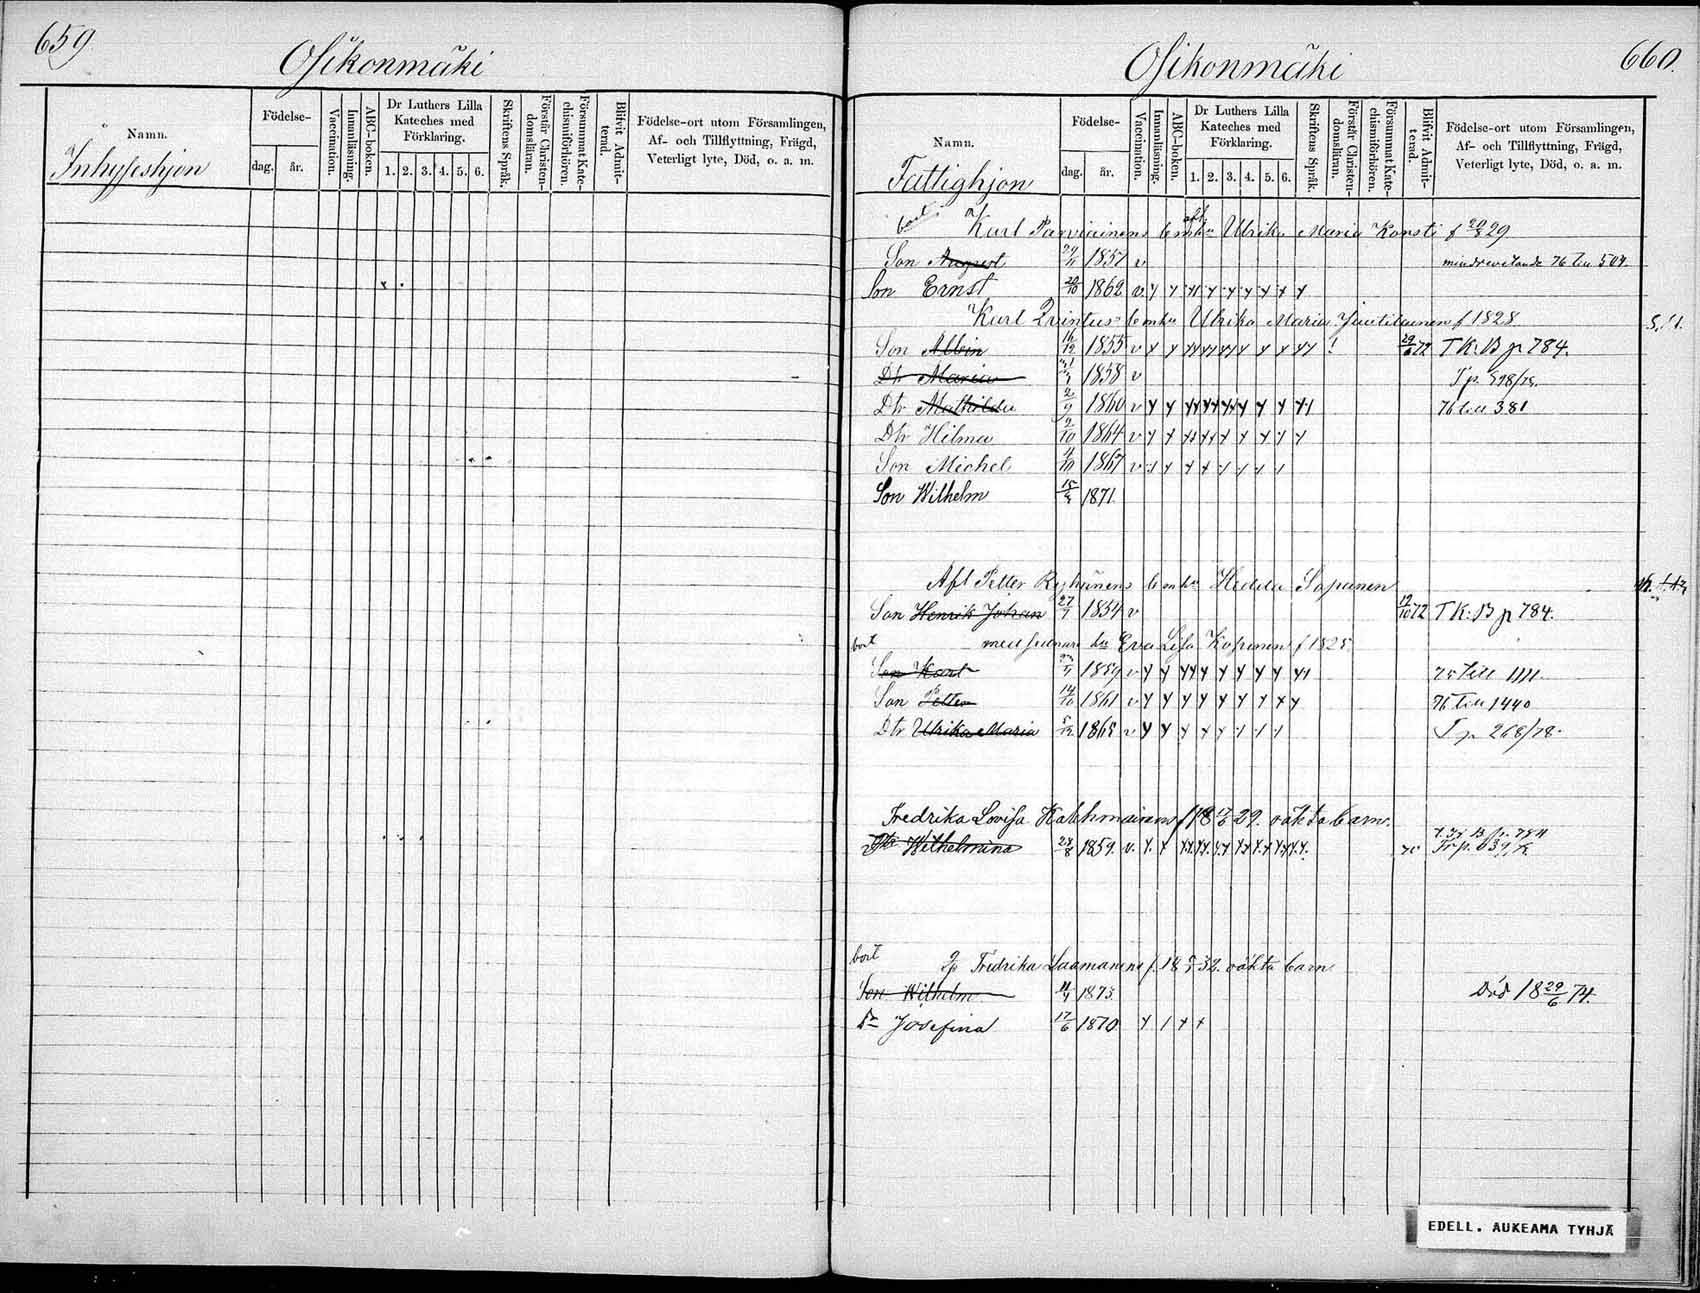 659
Osikonmäki
Namn.
Inhyseshjon
Födelse-
dag.
år.
Vaccination.
Innanläsning.
ABC-boken.
Dr Luthers Lilla
Kateches med
Förklaring.
1. 2. 3. 4. 5. 6.
Skriftens Språk.
Förstår Christen-
domsläran.
Försummat Kate-
chismiförhören.
Blifvit Admit-
terad.
Födelse-ort utom Församlingen,
Af- och Tillflyttning, Frägd,
Veterligt lyte, Död, o. a. m.
660.
Osikonmäki
Namn.
Fattighjon
Födelse-
dag.
år.
Vaccination.
Innanläsning.
ABC-boken.
Dr Luthers Lilla
Kateches med
Förklaring.
1. 2. 3. 4. 5. 6.
Skriftens Språk.
Förstår Christen-
domsläran.
Försummat Kate-
chismiförhören.
Blifvit Admit-
terad.
Födelse-ort utom Församlingen,
Af- och Tillflyttning, Frägd,
Veterligt lyte, Död, o. a. m.
bort Karl Parviainens Enka Ulrika Maria Konsti f 29
Son August 1857 v 76 till 504.
Son Ernst 29/10 1862 v
Karl Qvintus Enka Ulrika Maria Juutilainen f 1828
Son Albin 1855 v 29/6 72 T K. B p 784.
Dtr Maria 1858 v T p. 598/75.
Dtr Mathilda 2/9 1860 v 76 till 381
Dtr Hilma 2/10 1864 v
Son Michel 4/10 1867 v
Son Wilhelm 1871
Afl Petter Ryhänens Enka Hedda Sopanen
Son Henrik Johan 27/7 1854 v 12/10 72 T K. B p 784.
bort Eva Lisa Kapanen f 1825
Son Karl 1859 v 75 till 1111.
Son Petter 14/10 1861 v 76 till 1440
Dtr Ulrika Maria 5/12 1865 v T p 268/78.
Fredrika Lovisa 29. oäkta barn.
Dtr Wilhelmina 24/8 1859. v.
bort Fredrika Laamanens f. 18 32. oäkta barn
Son Wilhelm 1873. Död 18 29/6 74.
Dr Josefina 17/6 1870
EDELL. AUKEAMA TYHJÄ